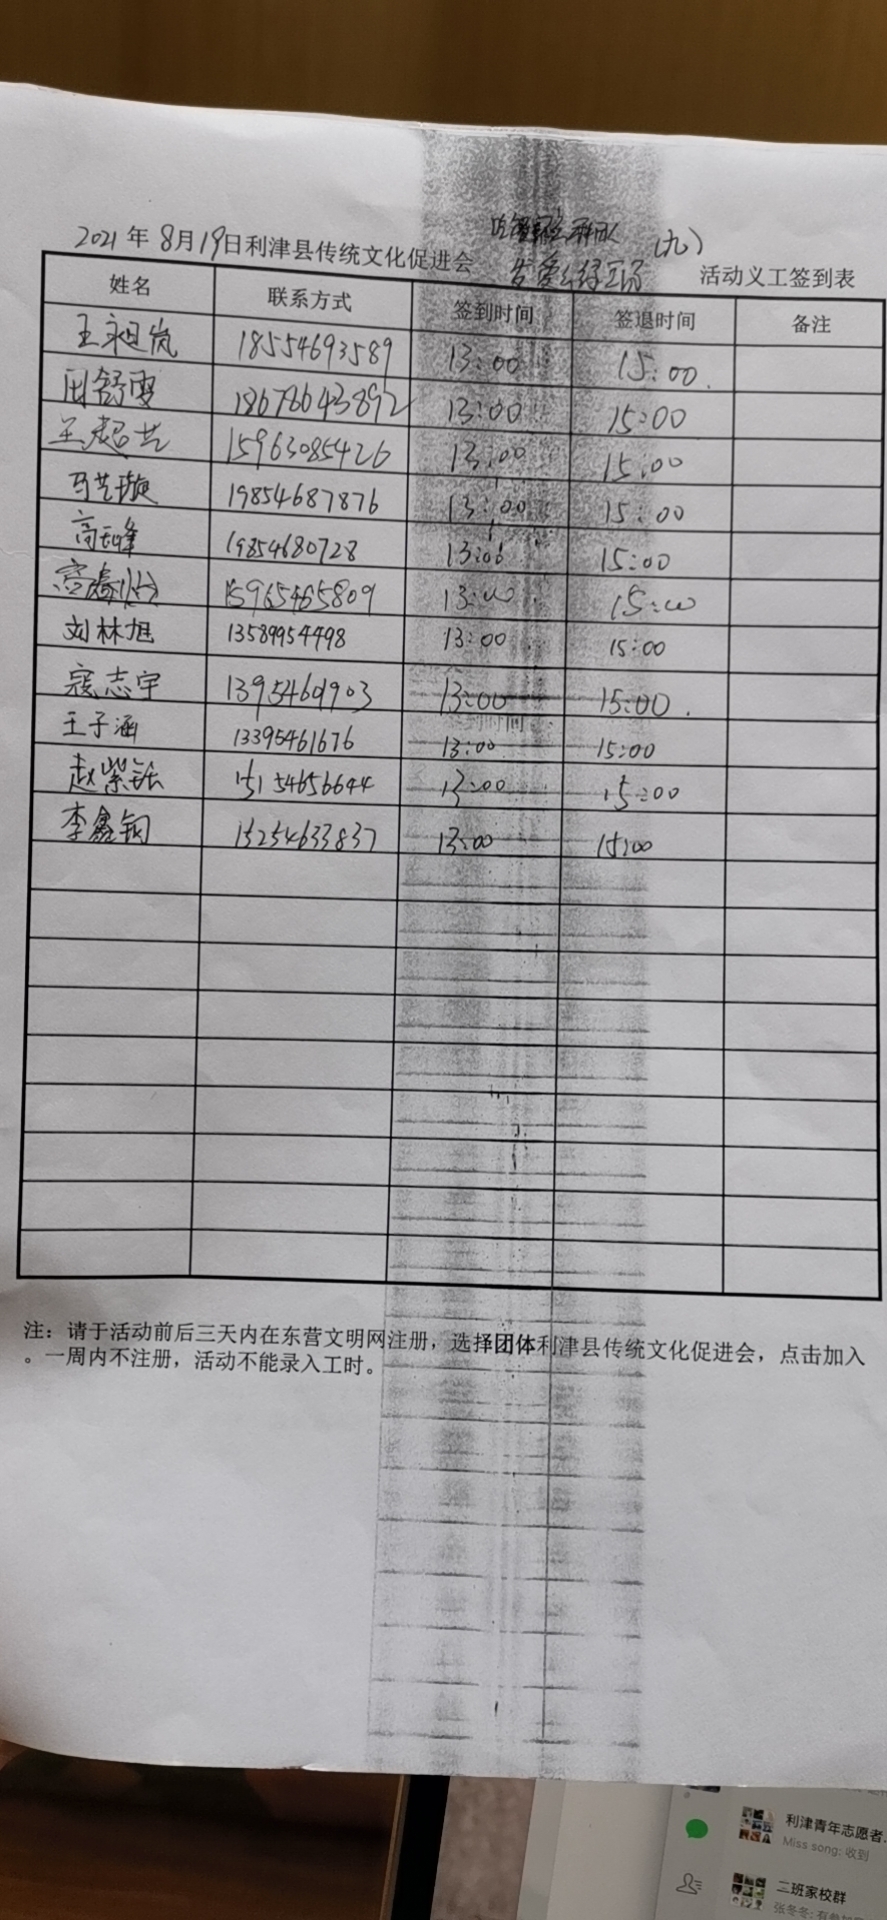 2021年8月19日利津县传统文化促进会 (九) 活动义工签到表
姓名 联系方式 签到时间 签退时间 备注
18554693589 13:00 15:00
田舒雯 18678643892 13:00 15:00
王超艺 15963085426 13:00 15:00
马艺璇 19854687876 13:00 15:00
19854680728 15:00
15965465809 13:00 15:00
刘林旭 13589954498 13:00 15:00
寇志宇 13954601903 13:00 15:00
王子涵 13395461676 13:00 15:00
赵紫钰 15154656644 13:00 15:00
李鑫钢 15254633837 13:00 15:00
注：请于活动前后三天内在东营文明网注册，选择团体利津县传统文化促进会，点击加入
。一周内不注册，活动不能录入工时。
利津青年志愿者
Miss song: 收到
二班家校群
张冬冬: